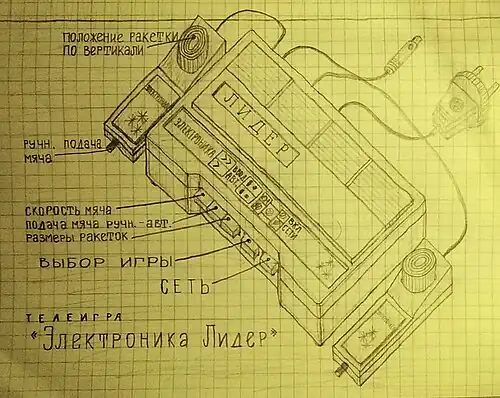 ПОЛОЖЕНИЕ РАКЕТКИ
ПО ВЕРТИКАЛИ
ЛИДЕР
ЭЛЕКТРОНИКА
РУЧН. ПОДАЧА
МЯЧА
СКОРОСТЬ МЯЧА
ПОДАЧА МЯЧА РУЧН.-АВТ.
РАЗМЕРЫ РАКЕТОК
ВЫБОР ИГРЫ
СЕТЬ
ТЕЛЕИГРА
«ЭЛЕКТРОНИКА ЛИДЕР»